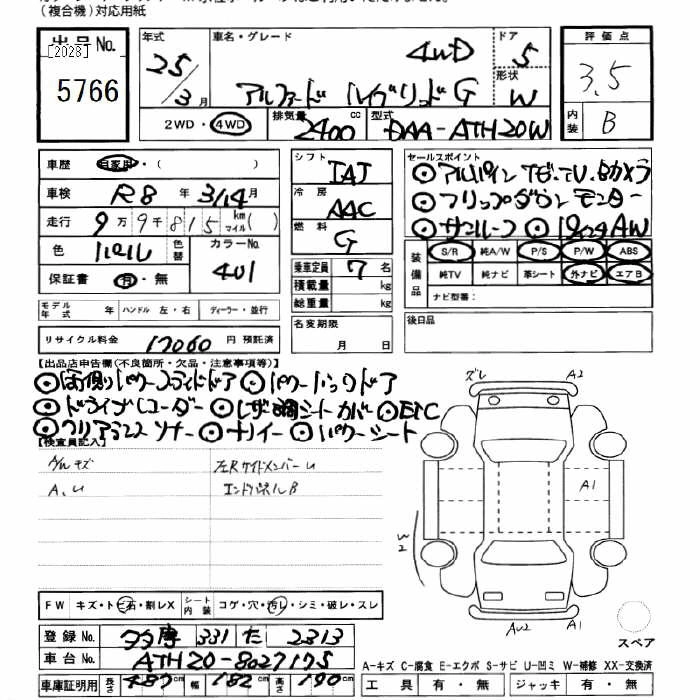 (複合機)対応用紙
出品No.
[2023]
5766
年式 25 / 3月
車名・グレード 4WD
アルファード ハイブリッドG
ドア 5
形状 W
評価点 3.5
内装 B
2WD・4WD 排気量 2400 cc 型式 DAA-ATH20W
車歴 自家用・( )
車検 R8年 3/14月
走行 9万9千815 km マイル( )
色 パール 色替 カラーNo. 401
保証書 有・無
シフト IAT
冷房 AAC
燃料 G
乗車定員 7名
積載量 kg
総重量 kg
名変期限 月 日
セールスポイント
◎アルパインナビ・TV・Bカメラ
◎フリップダウンモニター
◎サンルーフ ◎ AW
装備品 S/R 純A/W P/S P/W ABS
純TV 純ナビ 革シート 外ナビ エアB
ナビ型番:
後日品
モデル年式 年 ハンドル 左・右 ディーラー・並行
リサイクル料金 17060 円 預託済
【出品店申告欄(不良箇所・欠品・注意事項等)】
◎両側パワースライドドア ◎パワーバックドア
◎ドライブレコーダー ◎レザー調シートカバー ◎ETC
◎クリアランスソナー ◎ナノイー ◎パワーシート
【検査員記入】
A/Wキズ
A、U
左RサイドメンバーU
エンドパネルB
ズレ A2
A1
W2
AU2 A1
スペア
FW キズ・トビ石・割レX シート内装 コゲ・穴・汚レ・シミ・破レ・スレ
登録No. 多摩 331 た 2313
車台No. ATH20-8027175
車庫証明用 長さ 487 cm 幅 182 cm 高さ 190 cm
A-キズ C-腐食 E-エクボ S-サビ U-凹ミ W-補修 XX-交換済
工具 有・無 ジャッキ 有・無